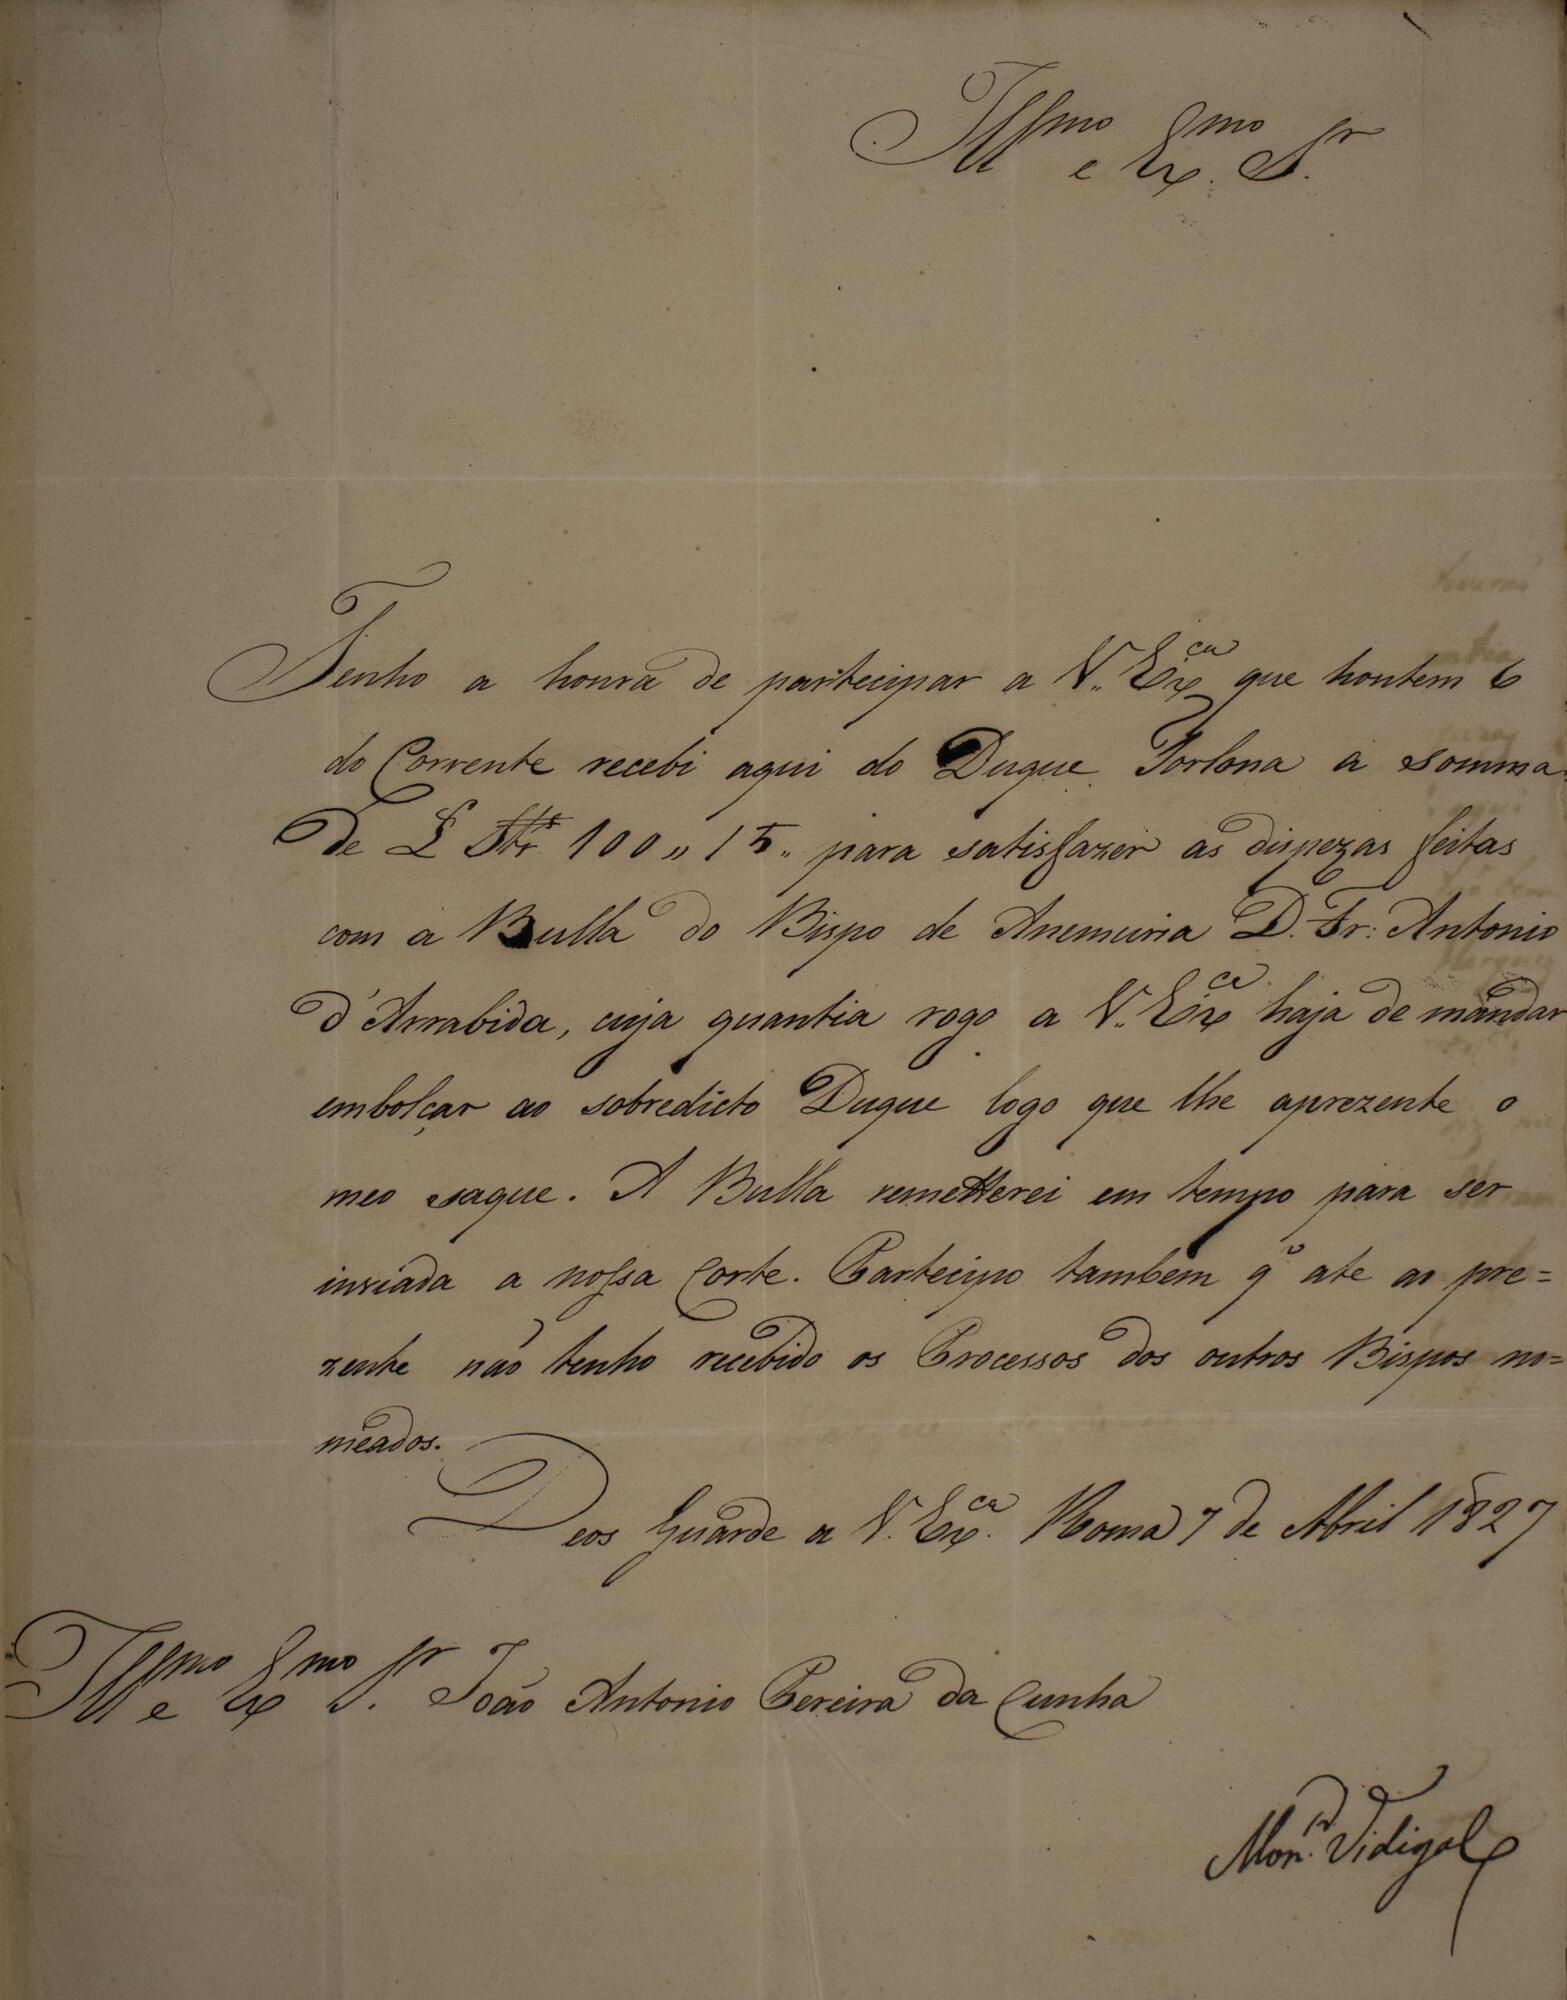 Illmo e Exmo Sr.
Tenho a honra de partecipar a V. Exca que hontem 6
do Corrente recebi aqui do Duque Torlona a somma
de £ Str 100 " 15 " para satisfazer as dispezas feitas
com a Bulla do Bispo de Anemuria D. Fr: Antonio
d'Arrabida, cuja quantia rogo a V. Exca haja de mandar
embolçar ao sobredicto Duque logo que lhe aprezente o
meo saque. A Bulla remetterei em tempo para ser
inviada a nossa Corte. Partecipo tambem qe ate ao pre=
zente não tenho recebido os Processos dos outros Bispos no=
meados.
Deos Guarde a V. Exca. Roma 7 de Abril 1827
Illmo e Exmo Sr. João Antonio Pereira da Cunha
Monr. Vidigal